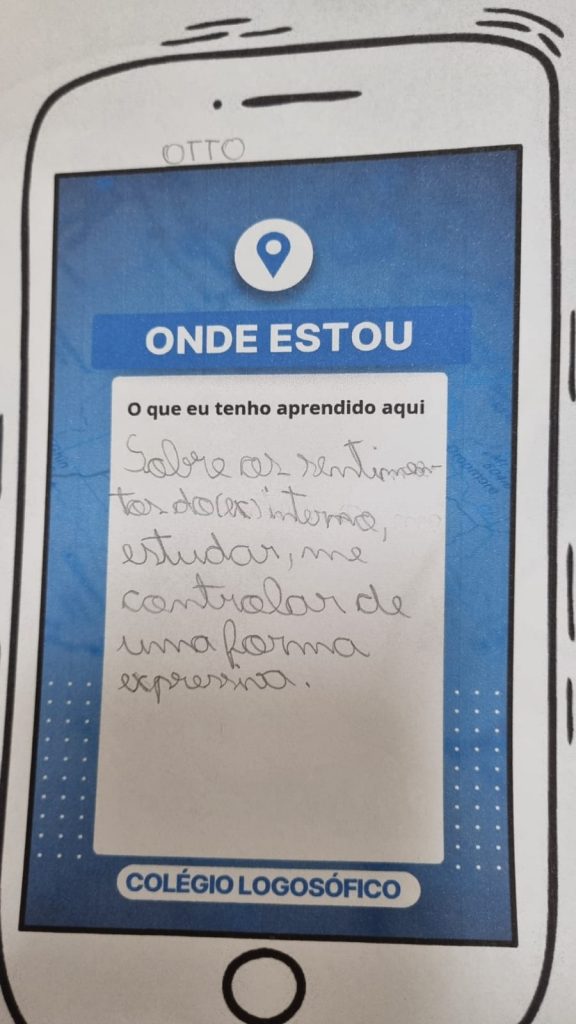 OTTO
ONDE ESTOU
O que eu tenho aprendido aqui
Sobre os sentimen-
tos do(ex) interno,
estudar, me
controlar de
uma forma
expressiva.
COLÉGIO LOGOSÓFICO